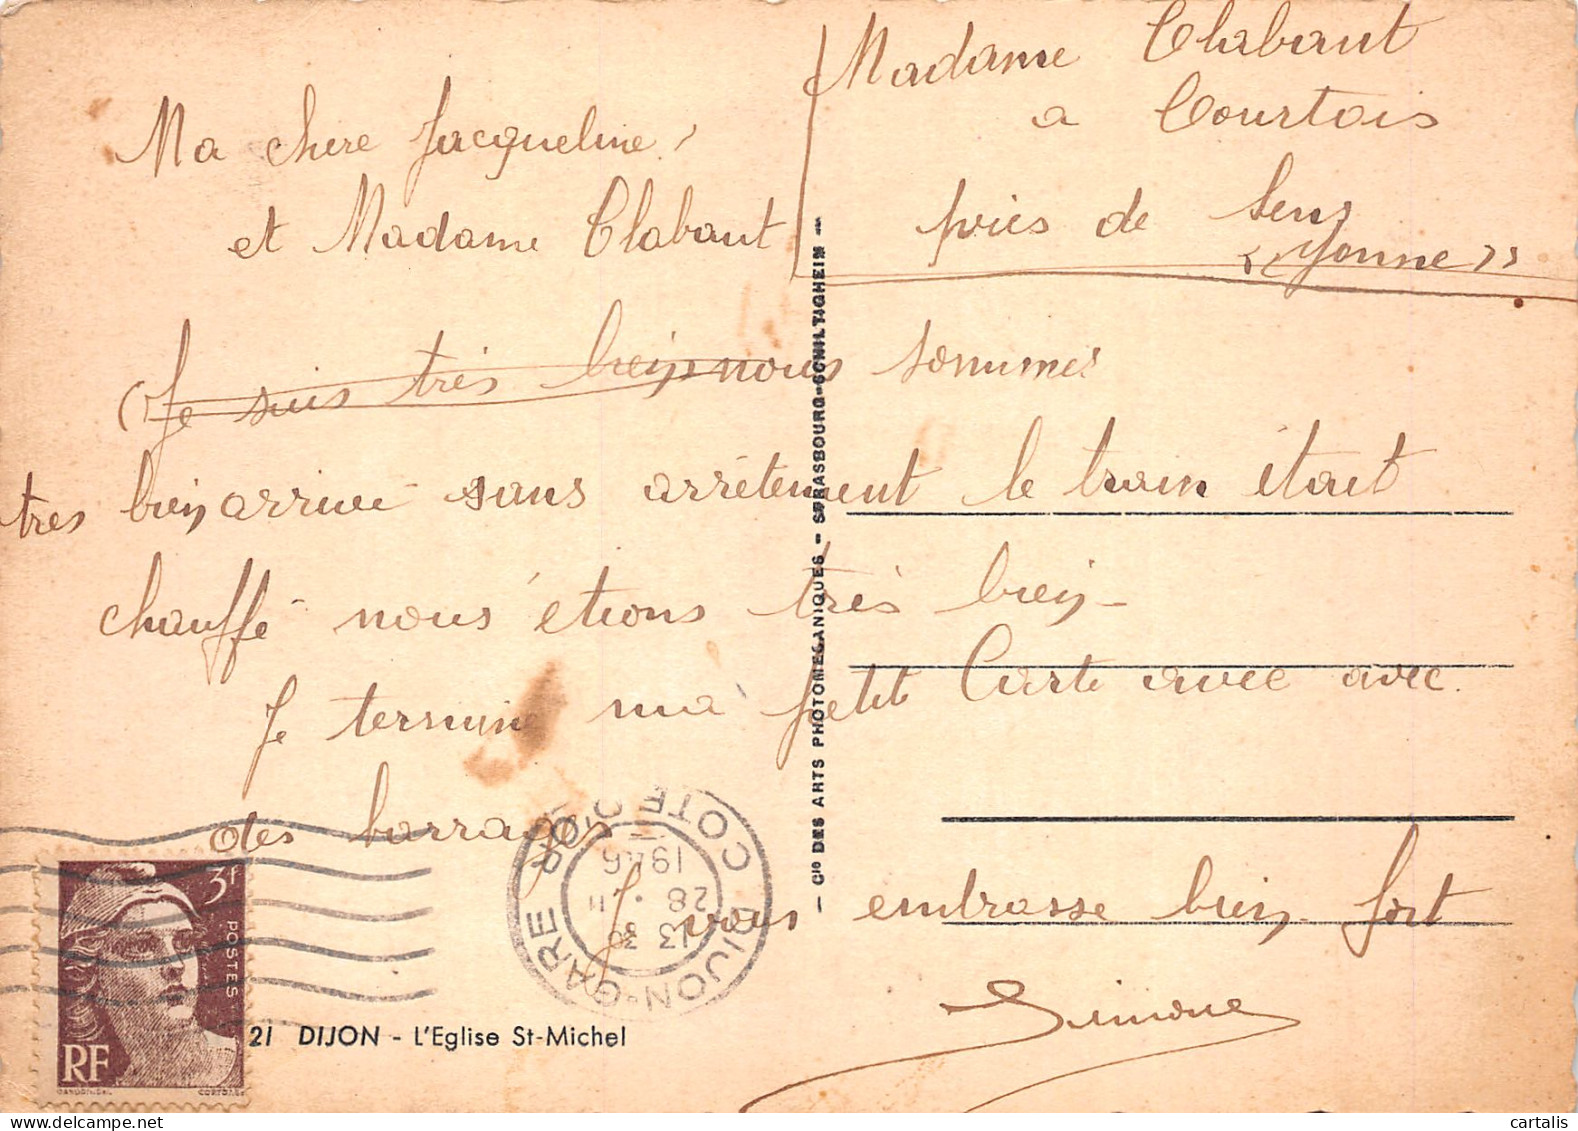 Madame Clabaut
a Courtois
près de Sens
"Yonne"
Ma chere Jacqueline,
et Madame Clabaut
(Je suis très bein nous sommes
tres bien arrivé sans arrétement le train était
chauffé nous étions très bien
Je termine ma petit Carte avec avec
des barrages
Je vous embrasse bien fort
Simone
Cie DES ARTS PHOTOMECANIQUES - STRASBOURG-SCHILTIGHEIM -
DIJON-GARE COTE D'OR
13 30
28 . 11
1946
3f
POSTES
RF
GANDON DEL.
CORTOT SC.
21 DIJON - L'Eglise St-Michel
cartalis
www.delcampe.net